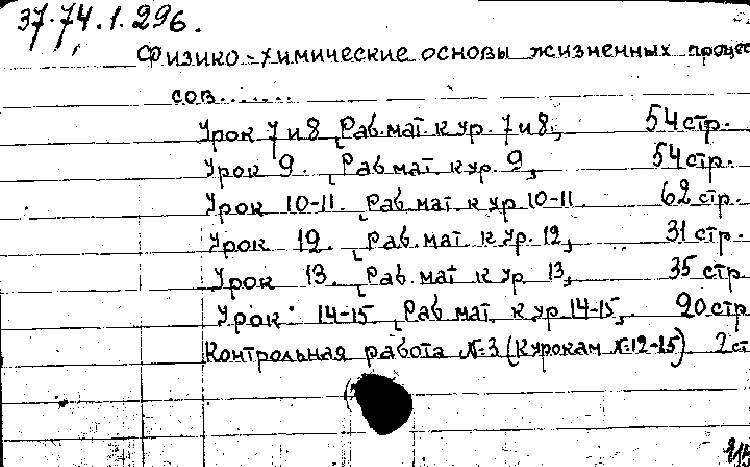 37.74.1.296.
Физико-химические основы жизненных процес
сов.......
Урок 7 и 8, Раб. мат. к ур. 7 и 8, 54 стр.
Урок 9. Раб. мат. к ур. 9, 54 стр.
Урок 10-11. Раб. мат. к ур 10-11. 62 стр.
Урок 12. Раб. мат. к ур. 12, 31 стр.
Урок 13. Раб. мат к ур. 13, 35 стр
Урок 14-15 Раб мат. к ур. 14-15, 20 стр
Контрольная работа №3 (к урокам №12-15) 2 ст